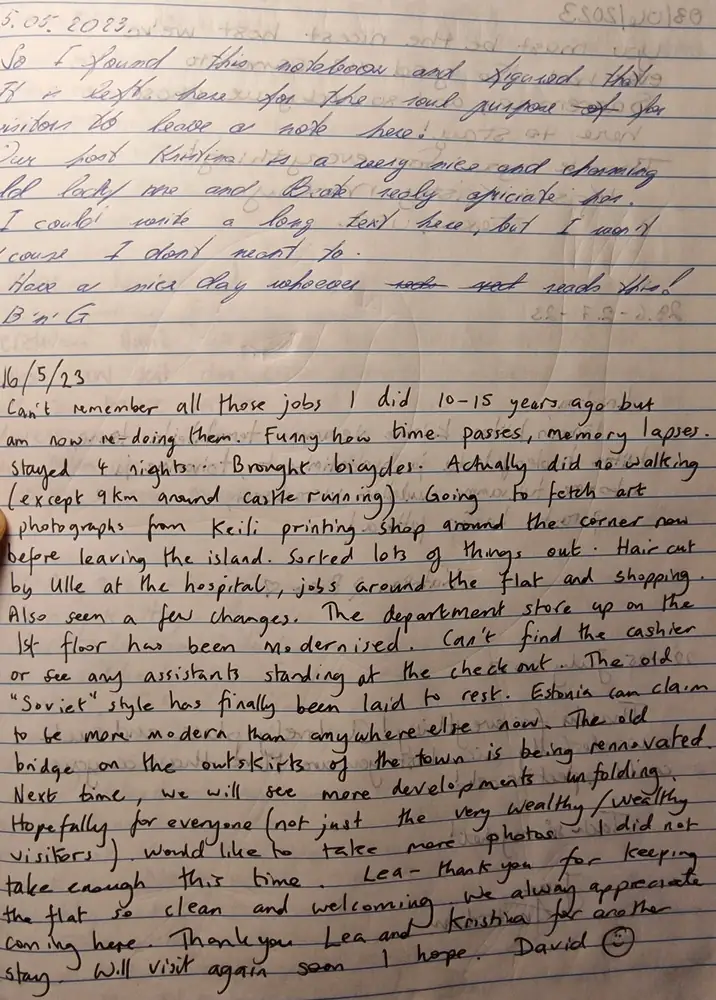 5.05.2023.
So I found this notebook and figured that
it is left here for the soul purpose of for
visitors to leave a note here!
Our host Kristina is a very nice and charming
old lady me and Beate realy apriciate her.
I could write a long text here, but I won't
'couse I don't want to.
Have a nice day whoever reads this!
B 'n' G
16/5/23
Can't remember all those jobs I did 10-15 years ago but
am now re-doing them. Funny how time passes, memory lapses.
Stayed 4 nights. Brought bicycles. Actually did no walking
(except 9km around castle running). Going to fetch art
photographs from Keili printing shop around the corner now
before leaving the island. Sorted lots of things out. Hair cut
by Ulle at the hospital, jobs around the flat and shopping.
Also seen a few changes. The department store up on the
1st floor has been modernised. Can't find the cashier
or see any assistants standing at the check out. The old
"Soviet" style has finally been laid to rest. Estonia can claim
to be more modern than anywhere else now. The old
bridge on the outskirts of the town is being rennovated.
Next time, we will see more developments unfolding.
Hopefully for everyone (not just the very wealthy/wealthy
visitors). Would like to take more photos - I did not
take enough this time. Lea - thank you for keeping
the flat so clean and welcoming. We always appreciate
coming here. Thank you Lea and Kristina for another
stay. Will visit again soon I hope. David ☺